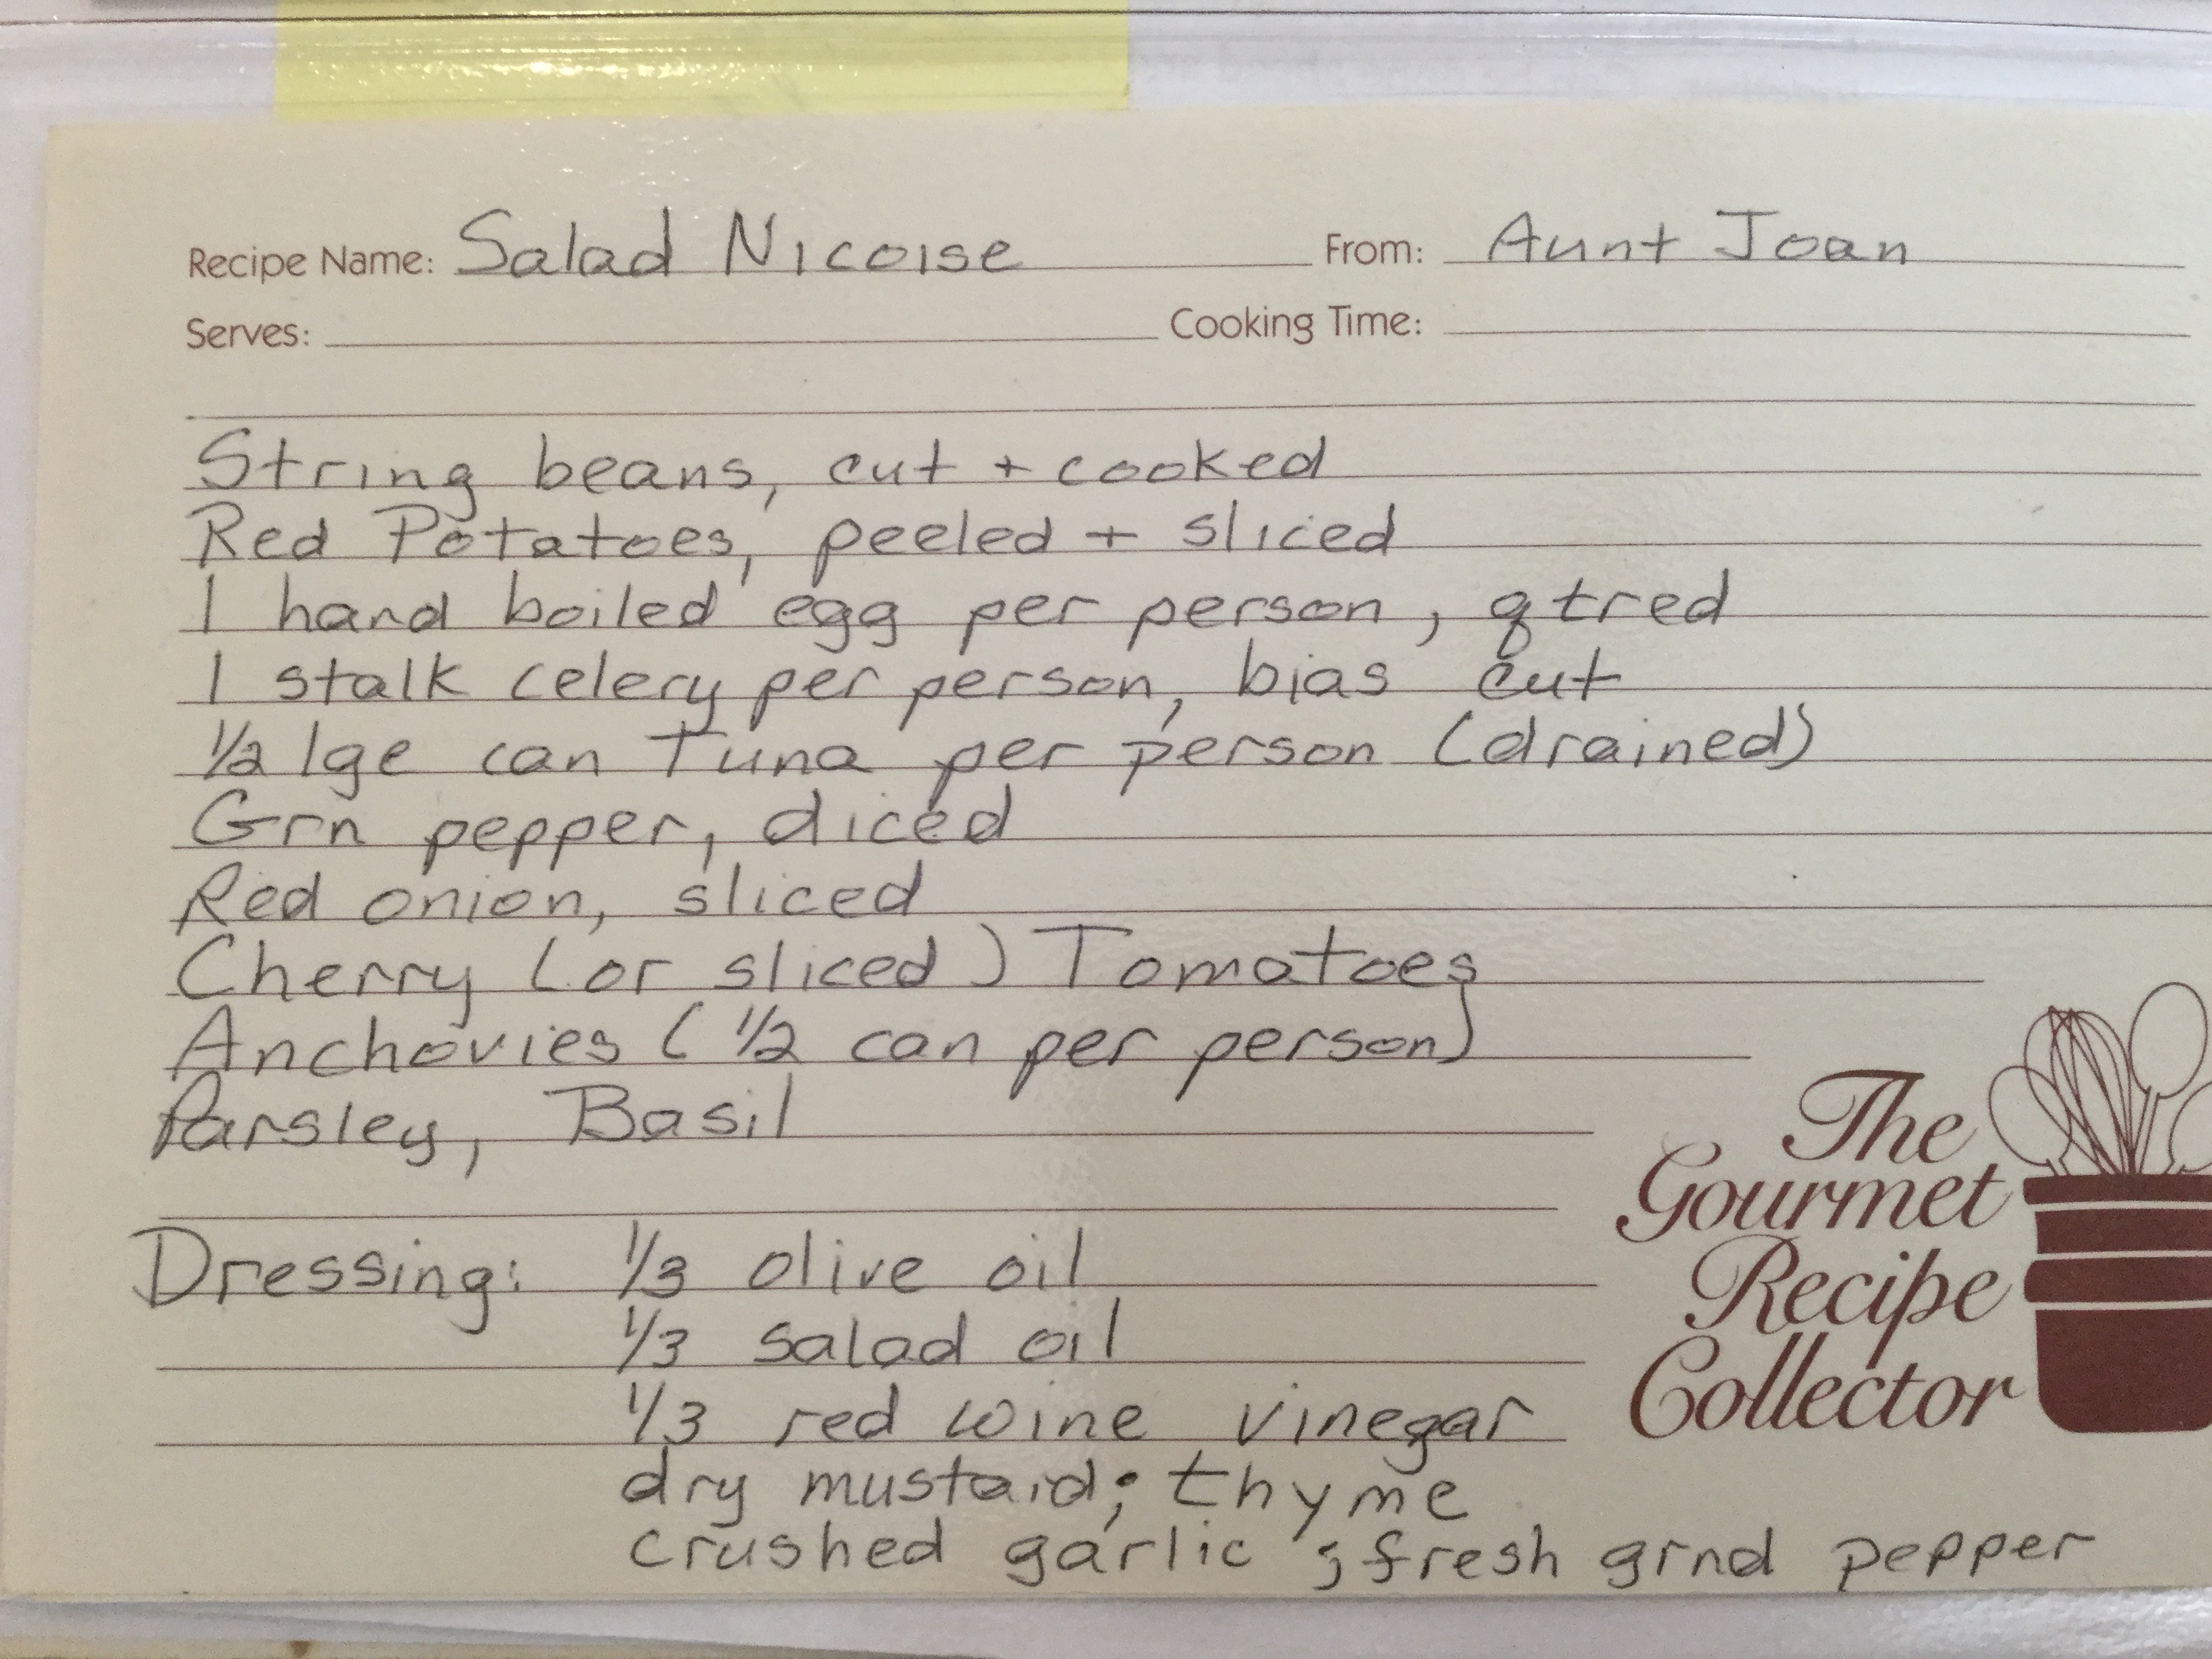 Recipe Name: Salad Nicoise From: Aunt Joan
Serves: Cooking Time:
String beans, cut + cooked
Red Potatoes, peeled + sliced
1 hard boiled egg per person, qtred
1 stalk celery per person, bias cut
1/2 lge can Tuna per person (drained)
Grn pepper, diced
Red onion, sliced
Cherry (or sliced) Tomatoes
Anchovies (1/2 can per person)
Parsley, Basil
Dressing: 1/3 olive oil
1/3 salad oil
1/3 red wine vinegar
dry mustard; thyme
crushed garlic; fresh grnd pepper
The
Gourmet
Recipe
Collector